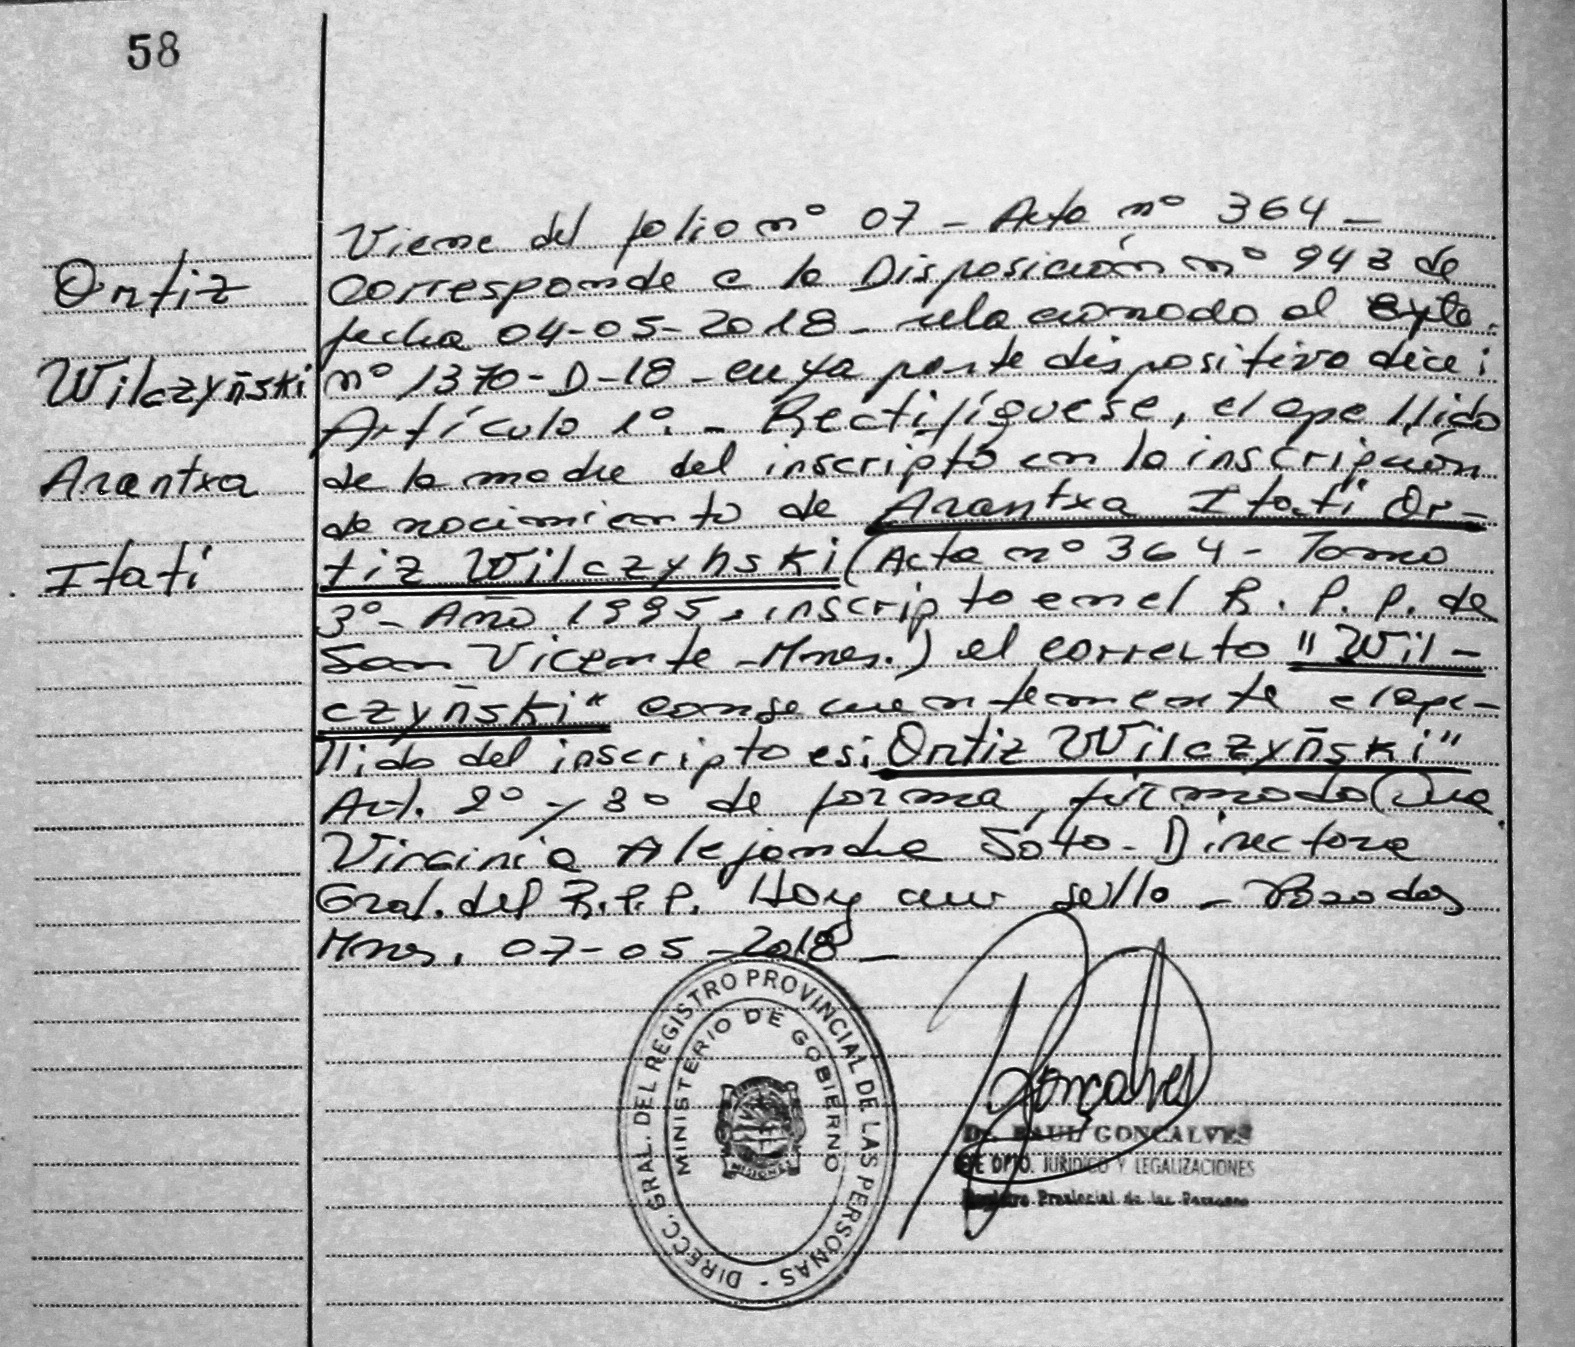 58
Ortiz
Wilczyñski
Arantxa
Itatí
Viene del folio nº 07 - Acta nº 364 -
Corresponde a la Disposición nº 943 de
fecha 04-05-2018 - relacionado al Expte.
nº 1370-D-18 - cuya parte dispositiva dice:
Artículo 1º. - Rectifíquese, el apellido
de la madre del inscripto en la inscripción
de nacimiento de Arantxa Itatí Or-
tiz Wilczyński (Acta nº 364 - Tomo
3º - Año 1995, inscripto en el R. P. P. de
San Vicente - Mnes.) el correcto "Wil-
czyñski" consecuentemente el ape-
llido del inscripto es: Ortiz Wilczyñski"
Art. 2º y 3º de forma, firmado
Virginia Alejandra Soto - Directora
Gral. del R.P.P. Hay un sello - Posadas
Mnes, 07-05-2018 -
DIRECC. GRAL. DEL REGISTRO PROVINCIAL DE LAS PERSONAS -
MINISTERIO DE GOBIERNO
MISIONES
Gonçalves
Dr. RAUL GONCALVES
DPTO. JURIDICO Y LEGALIZACIONES
Registro Provincial de las Personas